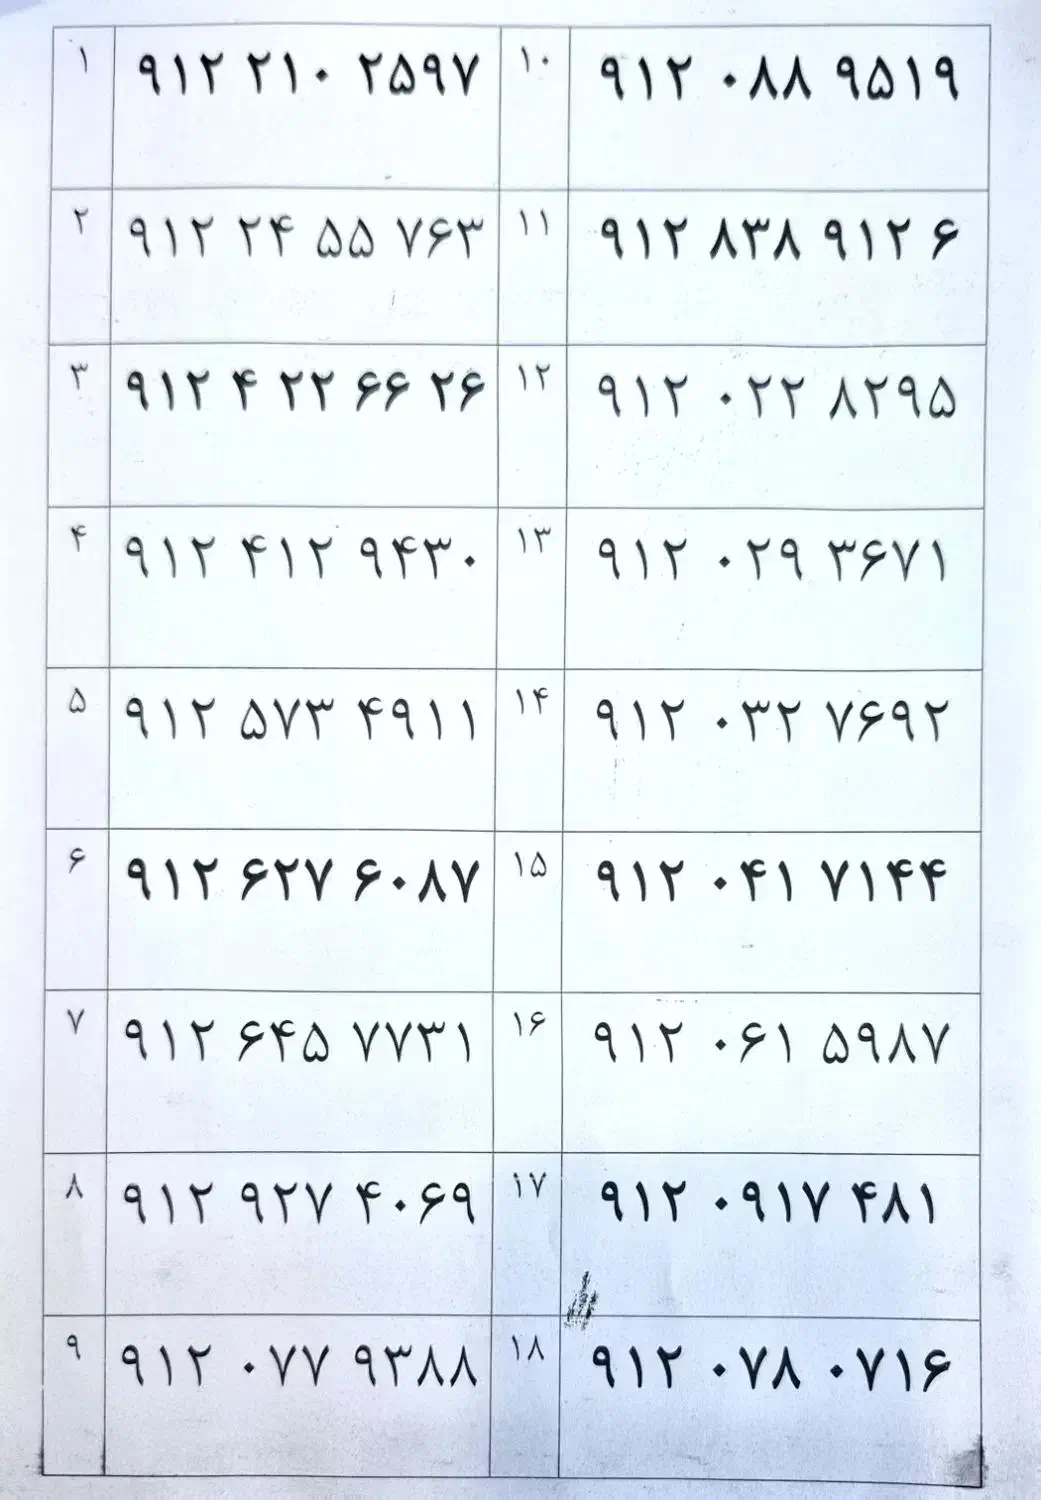 ۱ ۹۱۲ ۲۱۰ ۲۵۹۷ ۱۰ ۹۱۲ ۰۸۸ ۹۵۱۹
۲ ۹۱۲ ۲۴ ۵۵ ۷۶۳ ۱۱ ۹۱۲ ۸۳۸ ۹۱۲ ۶
۳ ۹۱۲ ۴ ۲۲ ۶۶ ۲۶ ۱۲ ۹۱۲ ۰۲۲ ۸۲۹۵
۴ ۹۱۲ ۴۱۲ ۹۴۳۰ ۱۳ ۹۱۲ ۰۲۹ ۳۶۷۱
۵ ۹۱۲ ۵۷۳ ۴۹۱۱ ۱۴ ۹۱۲ ۰۳۲ ۷۶۹۲
۶ ۹۱۲ ۶۲۷ ۶۰۸۷ ۱۵ ۹۱۲ ۰۴۱ ۷۱۴۴
۷ ۹۱۲ ۶۴۵ ۷۷۳۱ ۱۶ ۹۱۲ ۰۶۱ ۵۹۸۷
۸ ۹۱۲ ۹۲۷ ۴۰۶۹ ۱۷ ۹۱۲ ۰۹۱۷ ۴۸۱
۹ ۹۱۲ ۰۷۷ ۹۳۸۸ ۱۸ ۹۱۲ ۰۷۸ ۰۷۱۶